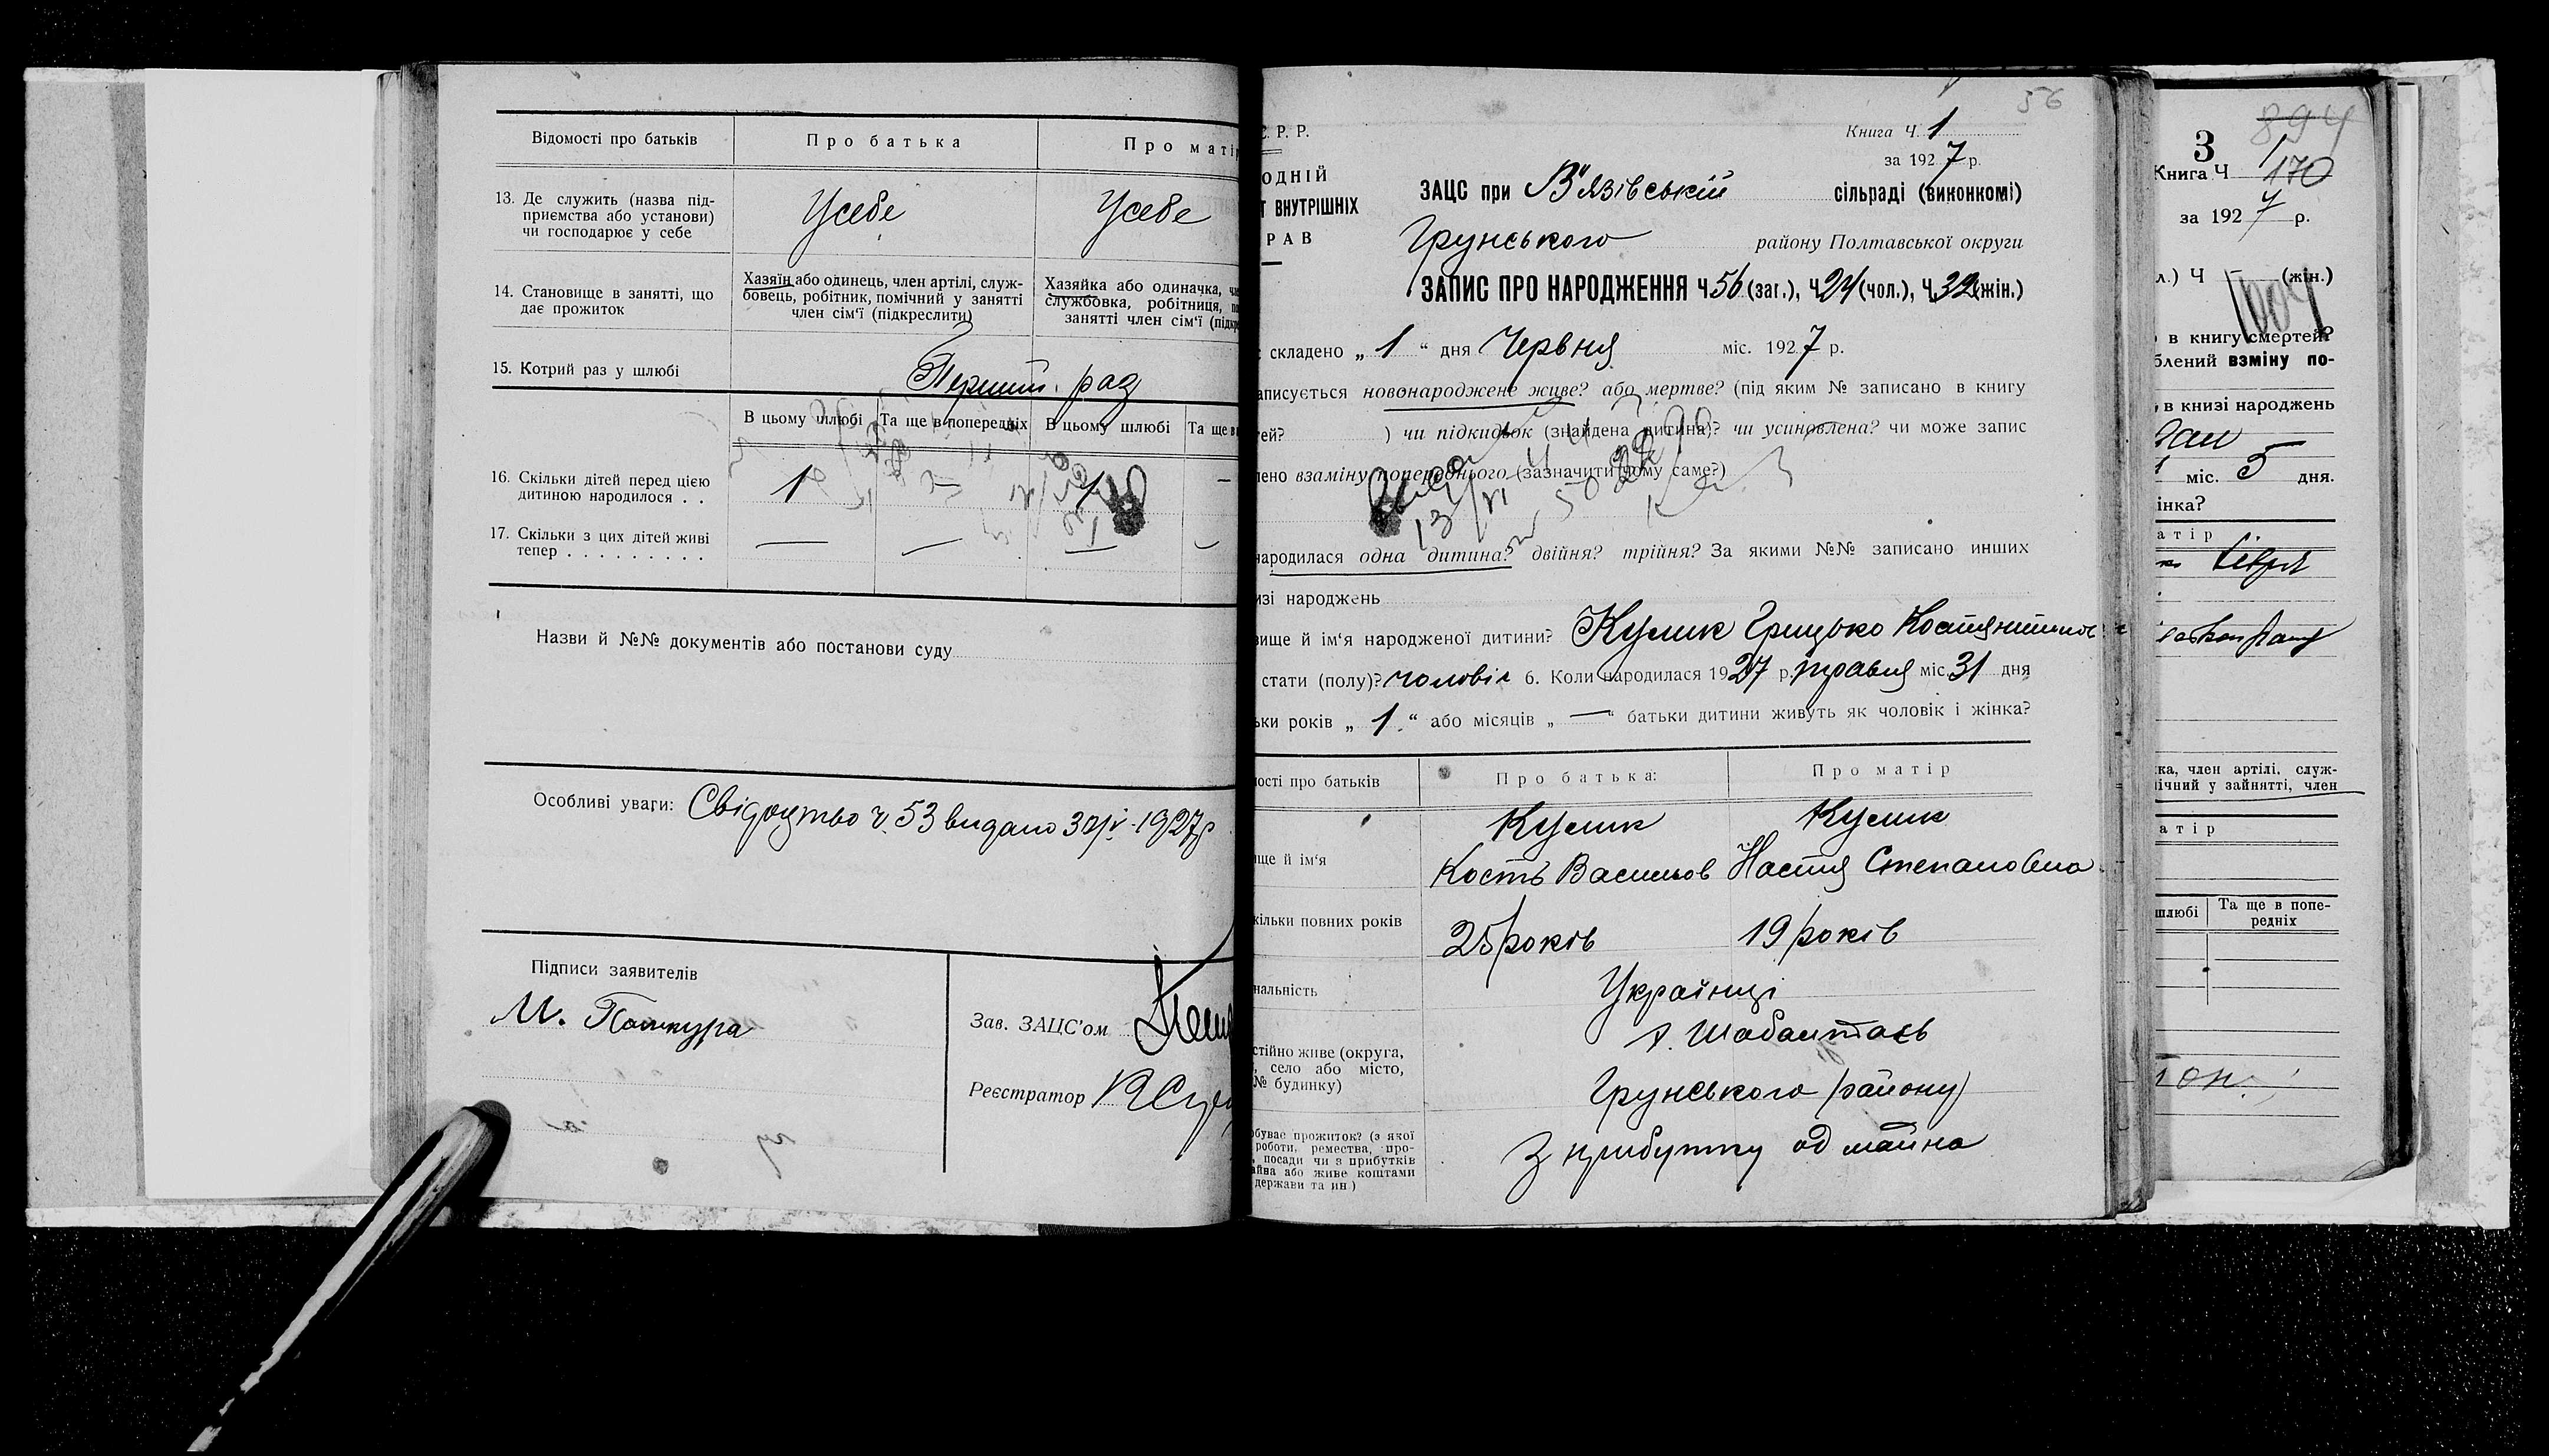 Відомості про батьків
Про батька
Про матір
13. Де служить (назва під-
приємства або установи)
чи господарює у себе
Усебе
Усебе
14. Становище в занятті, що
дає прожиток
Хазяїн або одинець, член артілі, служ-
бовець, робітник, помічний у занятті
член сім'ї (підкреслити)
Хазяйка або одиначка,
службовка, робітниця,
занятті член сім'ї
15. Котрий раз у шлюбі
Перший раз
В цьому шлюбі
Та ще в попередніх
В цьому шлюбі
Та ще в
16. Скільки дітей перед цією
дитиною народилося . .
1
—
1
—
17. Скільки з цих дітей живі
тепер . . . . . . . . .
—
—
—
Назви й №№ документів або постанови суду
Особливі уваги: Свідоцтво ч. 53 видано 1927р
Підписи заявителів
М.
Зав. ЗАЦС'ом
Реєстратор
56
С. Р. Р.
Книга Ч. 1
за 1927 р.
ОДНІЙ
Т ВНУТРІШНІХ
РАВ
ЗАЦС при В'язівській сільраді (виконкомі)
Грунського району Полтавської округи
ЗАПИС ПРО НАРОДЖЕННЯ Ч 56 (заг.), Ч 24 (чол.), Ч 32 (жін.)
складено „ 1 “ дня Червня міс. 1927 р.
аписується новонароджене живе? або мертве? (під яким № записано в книгу
ей? ) чи підкидьок (знайдена дитина)? чи усиновлена? чи може запис
лено взаміну попереднього (зазначити чому саме?)
народилася одна дитина? двійня? трійня? За якими №№ записано инших
изі народжень
вище й ім'я народженої дитини? Кулик Грицько
стати (полу)? чоловіч 6. Коли народилася 1927 р. травня міс. 31 дня
ьки років „ 1 “ або місяців „ — “ батьки дитини живуть як чоловік і жінка?
ості про батьків
Про батька:
Про матір
ище й ім'я
Кулик
Кость Васильов
Кулик
Настя Степановна
кільки повних років
25 років
19 років
нальність
Українці
стійно живе (округа,
село або місто,
№ будинку)
х. Шабалтаєв
Грунського району
обуває прожиток? (з якої
роботи, ремества, про-
посади чи з прибутків
айна або живе коштами
держави та ин.)
З прибутку од майна
894
3
Книга Ч 1
170
за 1927 р.
л.) Ч — (жін.)
в книгу смертей?
блений взміну по-
в книзі народжень
міс. 5 дня.
інка?
атір
ка, член артілі, служ-
ічний у зайнятті, член
атір
шлюбі
Та ще в попе-
редніх